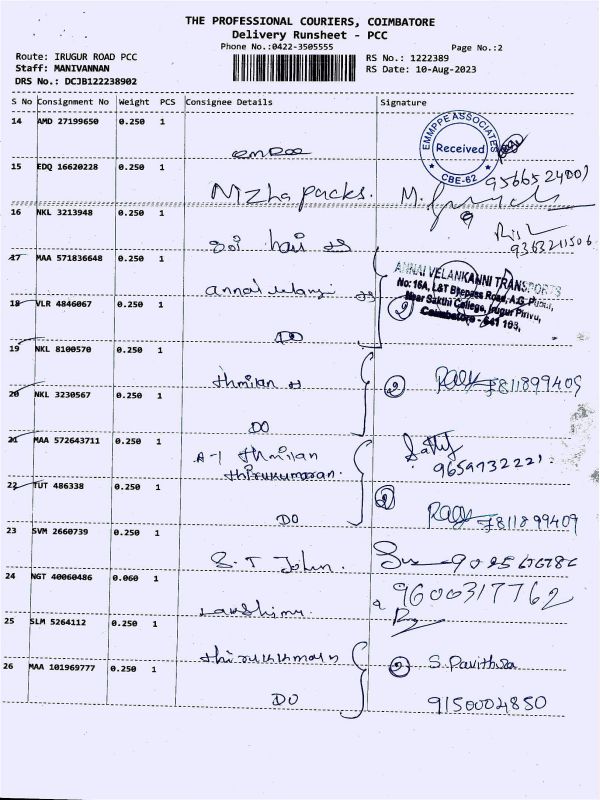 THE PROFESSIONAL COURIERS, COIMBATORE
Delivery Runsheet - PCC
Phone No.:0422-3505555 Page No.:2
Route: IRUGUR ROAD PCC RS No.: 1222389
Staff: MANIVANNAN RS Date: 10-Aug-2023
DRS No.: DCJB122238902
S No Consignment No Weight PCS Consignee Details Signature
14 AMD 27199650 0.250 1
EMMPPE ASSOCIATES
Received
CBE-62
15 EDQ 16620228 0.250 1
Nizha packs. 9566524001
16 NKL 3213948 0.250 1
Sri hari 9363211506
17 MAA 571836648 0.250 1
annai
ANNAI VELANKANNI TRANSPORTS
No: 16A, L&T Bypass Road, A.G. Pudur,
Near Sakthi College, Irugur Pirivu,
Coimbatore - 641 103,
18 VLR 4846067 0.250 1
DO 2
19 NKL 8100570 0.250 1
thmilan 2 7811899409
20 NKL 3230567 0.250 1
DO
21 MAA 572643711 0.250 1
A-1 thmilan
thirukumaran. 9659732221.
22 TUT 486338 0.250 1
DO 2 7811899409
23 SVM 2660739 0.250 1
S.T John.
24 NGT 40060486 0.060 1
9600317762
25 SLM 5264112 0.250 1
2 S. Pavithra
26 MAA 101969777 0.250 1
DO 9150004850